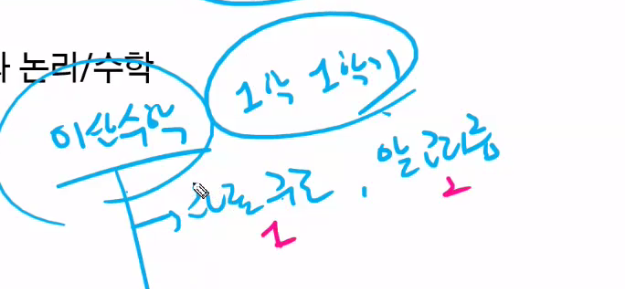 논리/수학
이산수학 1학 1학기
→ 자료구조, 알고리즘
1 2